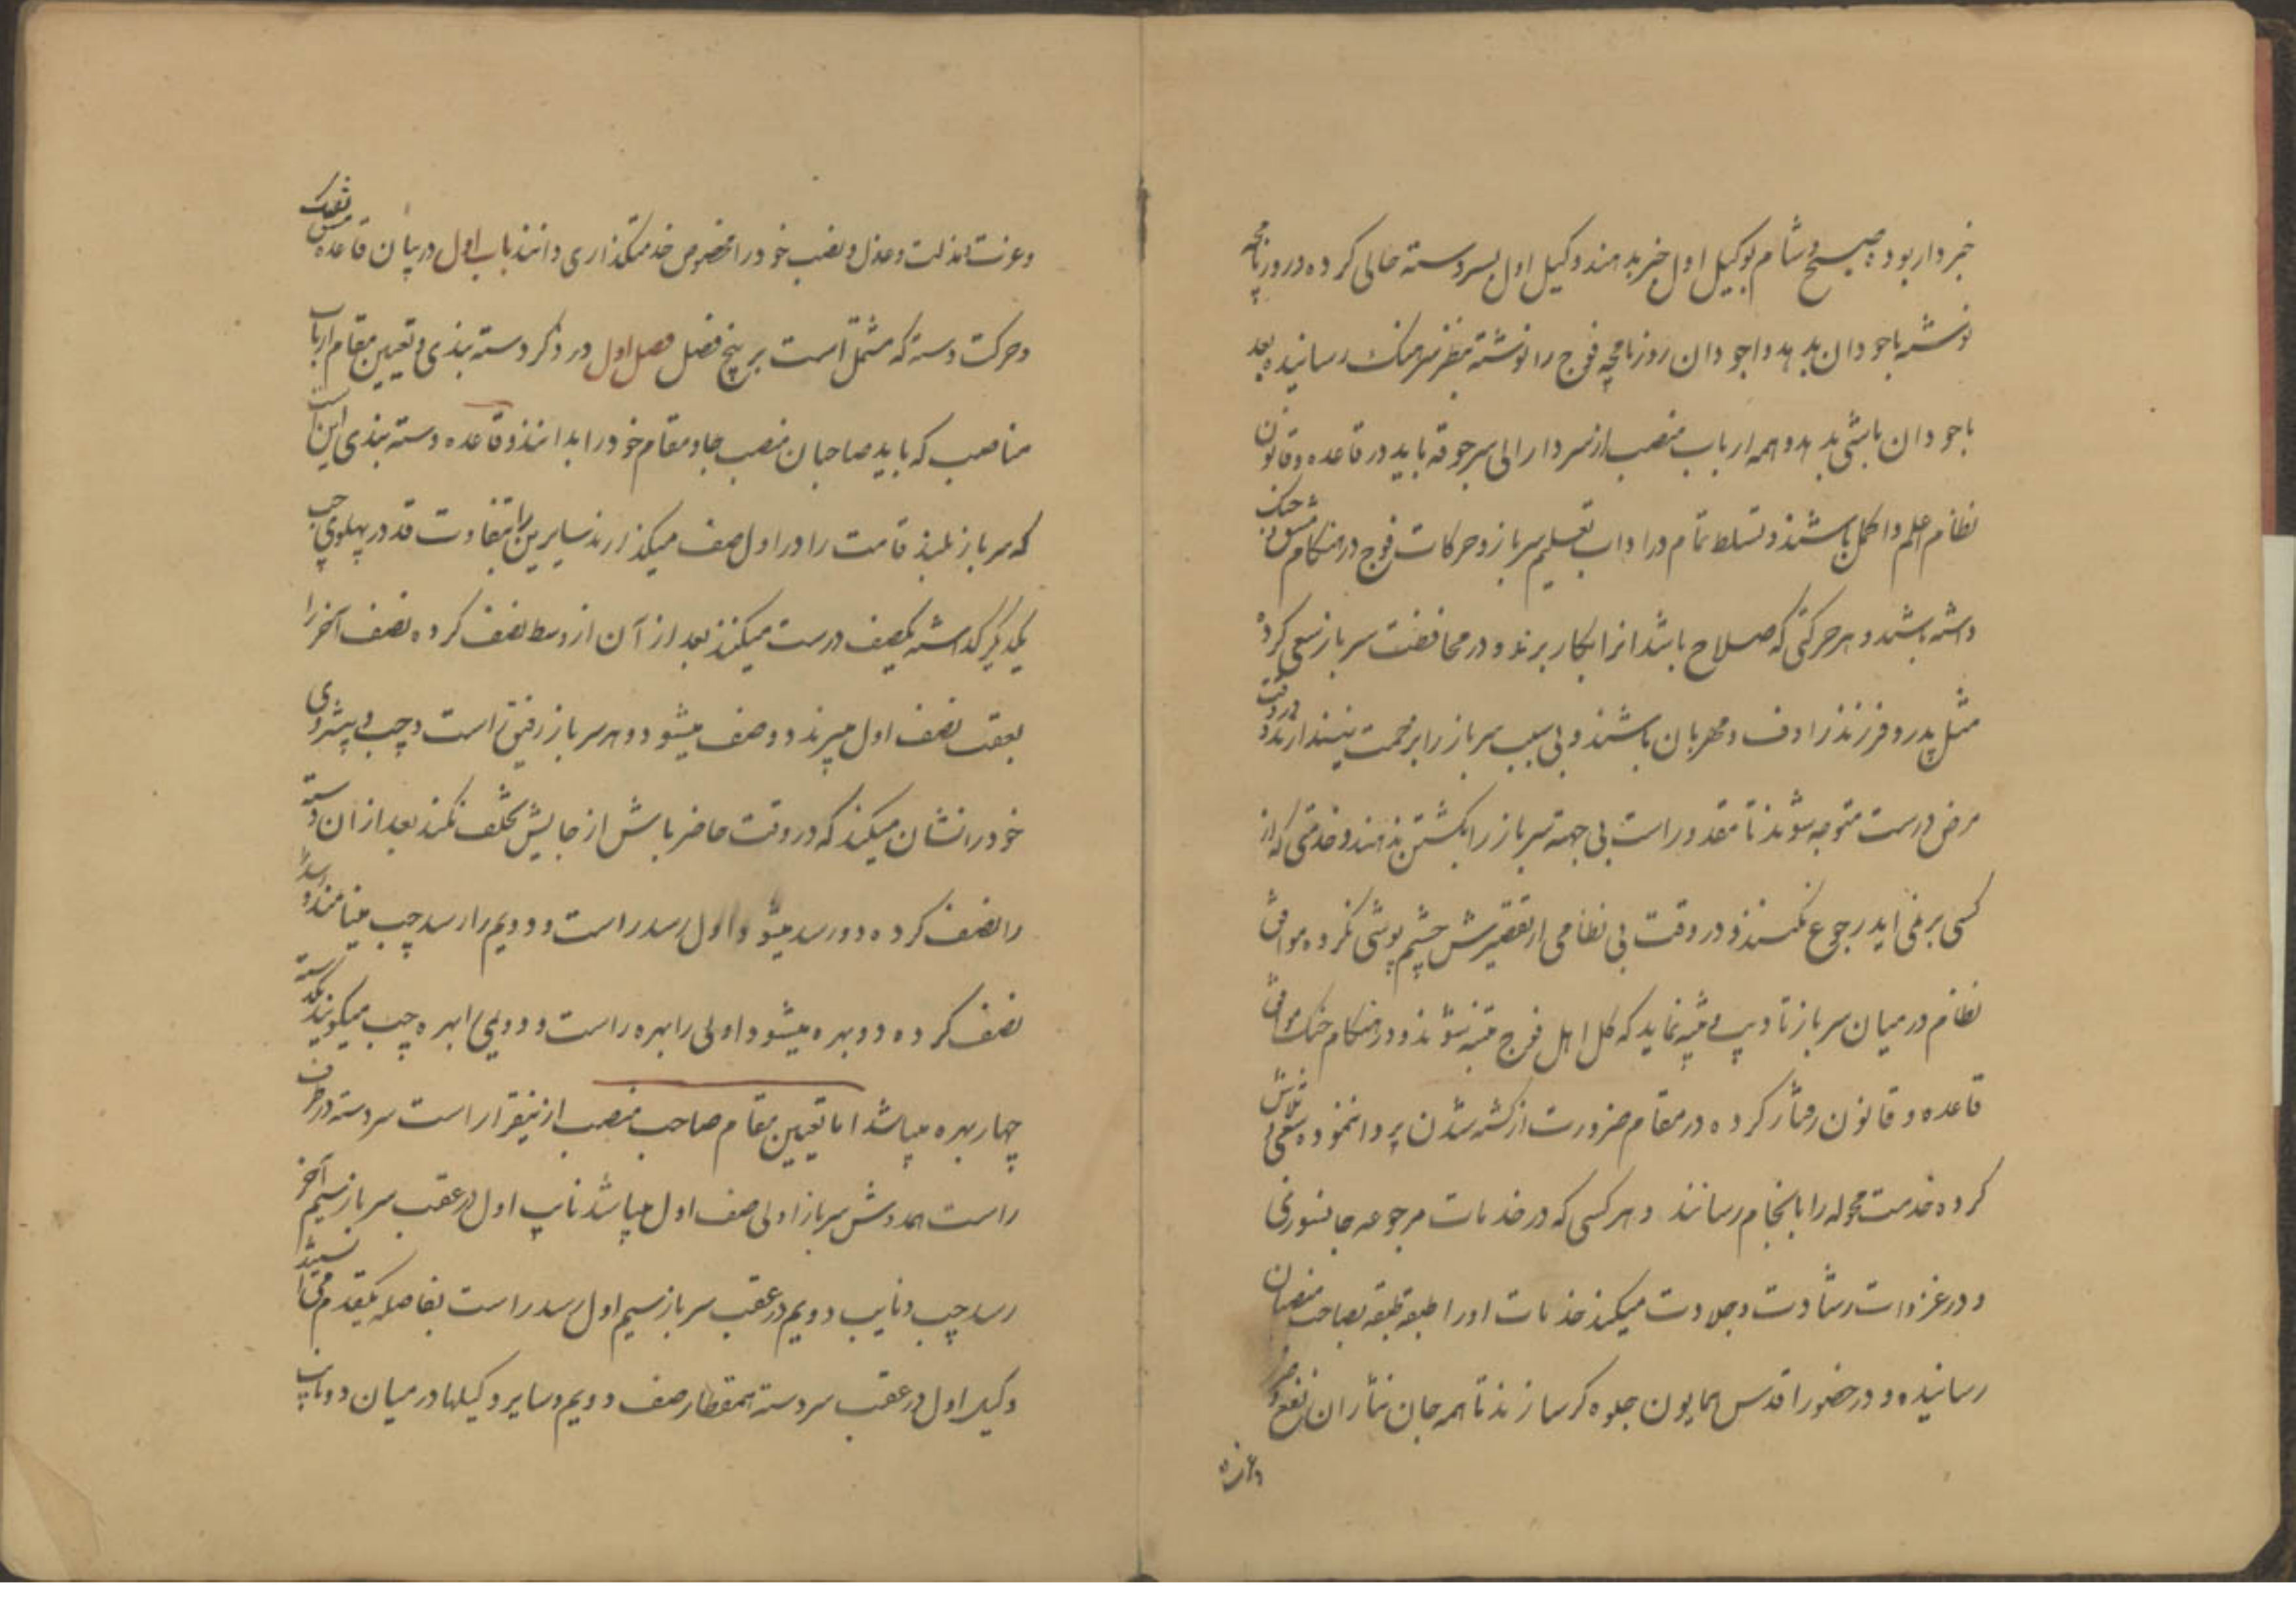 خبردار بوده صبح و شام بوکیل اول خبر بدهند و کیل اول بسردسته حالی کرده در روزنامچه
نوشته باجودان بدهد و اجودان روزنامچه فوج را نوشته بنظر سرهنک رسانیده بعد
باجودان باشی بدهد و همه ارباب منصب از سردار الی سرجوقه باید در قاعده و قانون
نظام اعلم و اکمل باشند و تسلط تمام در اداب تعلیم سرباز و حرکات فوج در هنکام مشق و جنک
داشته باشند و هر حرکتی که صلاح باشد انرا بکار برند و در محافضت سرباز سعی کرده
مثل پدر و فرزند زادف و مهربان باشند و بی سبب سرباز را بزحمت نیندازند و در وقت
مرض درست متوجه شوند تا مقدور است بی جهته سرباز را بکشتن ندهند و خدمتی که از
کسی بر نمی اید رجوع نکنند و در وقت بی نظامی از تقصیرش چشم پوشی نکرده موافق
نظام در میان سرباز تادیب و تنبیه نماید که کل اهل فوج متنبه شوند و در هنکام جنک موافق
قاعده و قانون رفتار کرده در مقام ضرورت از کشته شدن پروا ننموده سعی و تلاش
کرده خدمت محوله را بانجام رسانند و هر کسی که در خدمات مرجوعه جانسوزی
و در غزوات رشادت و جلادت میکند خدمات او را طبقه طبقه بصاحب منصبان
رسانیده و در حضور اقدس همایون جلوه کر سازند تا همه جان نثاران نفع و ضرر
و عزت
و عزت و مذلت و عزل و نصب خود را مخصوص خدمتکذاری دانند باب اول در بیان قاعده مشق تفنک
و حرکت دسته که مشتمل است بر پنج فصل فصل اول در ذکر دسته بندی و تعیین مقام ارباب
مناصب که باید صاحبان منصب جا و مقام خود را بدانند و قاعده دسته بندی این است
که سرباز بلند قامت را در اول صف میکذارند سایرین را بتفاوت قد در پهلوی چپ
یکدیکر کذاشته یکصف درست میکنند بعد از آن از وسط نصف کرده نصف آخر را
بعقب نصف اول میبرند دو صف میشود و هر سرباز رفیق راست و چپ و پیشروی
خود را نشان میکند که در وقت حاضر باش از جایش تخلف نکند بعد از ان دسته
را نصف کرده دو رسد میشود اول رسد راست و دویم را رسد چپ مینامند و رسد را
نصف کرده دو بهره میشود اولی را بهره راست و دویمی را بهره چپ میکویند یکدسته
چهار بهره میباشد اما تعیین مقام صاحب منصب ازینقرار است سردسته در طرف
راست همدوش سرباز اولی صف اول میباشد نایب اول در عقب سرباز سیم آخر
رسد چپ و نایب دویم در عقب سرباز سیم اول رسد راست بفاصله یکقدم می ایستند
وکیل اول در عقب سردسته همقطار صف دویم و سایر وکیلها در میان دو نایب